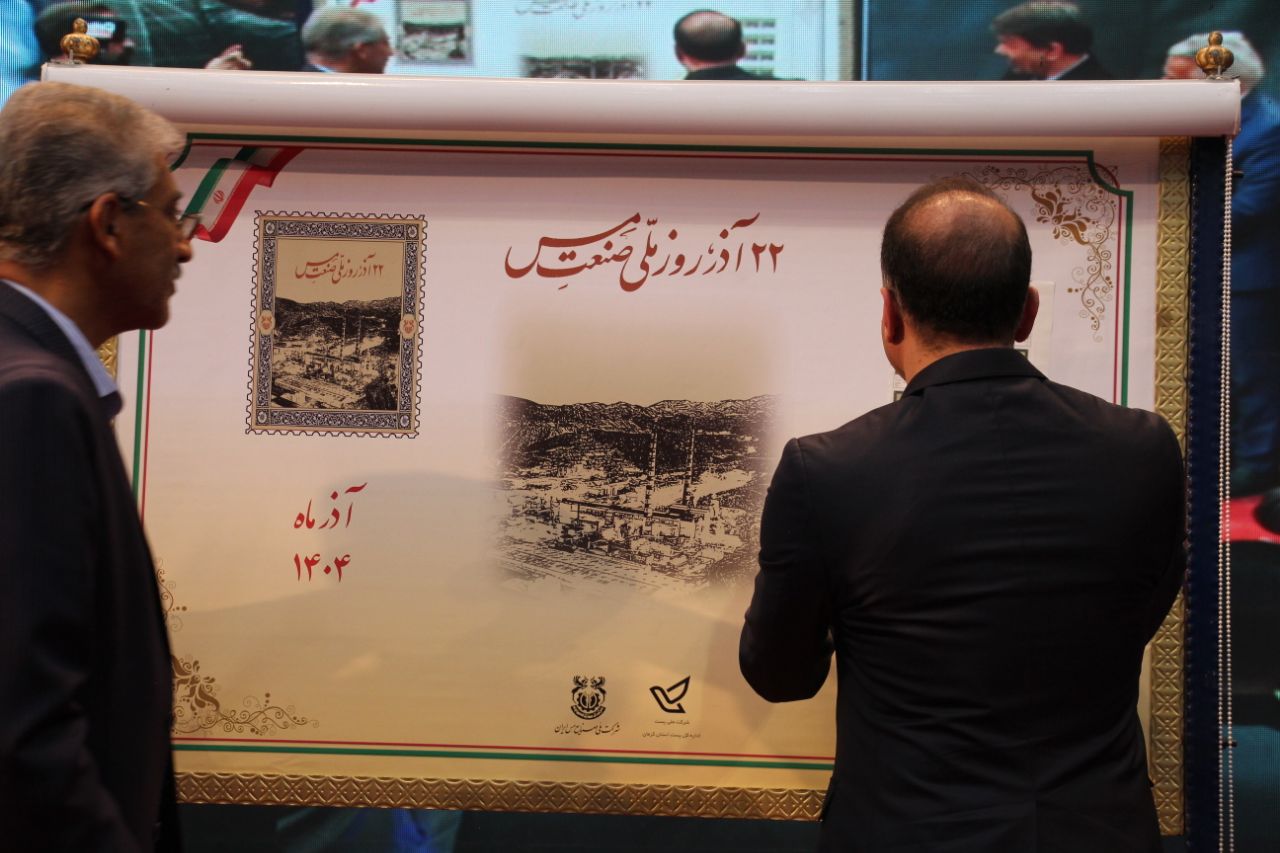 ۲۲ آذر، روز ملّی صنعتِ مس
۲۲ آذر، روز ملّی صنعتِ مس
آذر ماه
۱۴۰۴
شرکت ملی صنایع مس ایران
شرکت ملی پست
اداره کل پست استان کرمان